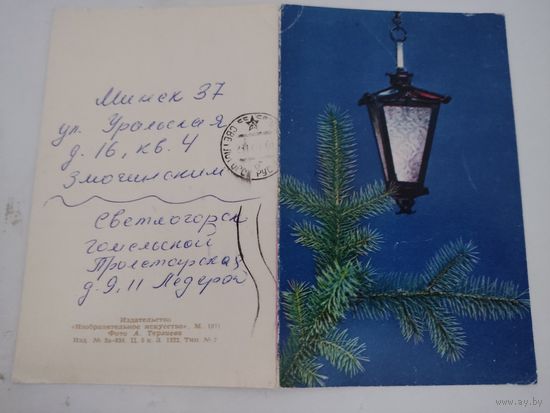 Минск 37
ул. Уральская
д. 16, кв. 4
Змочинским
Светлогорск
Гомельской
Пролетарская
д. 9, 11 Ледерой
Издательство
«Изобразительное искусство». М. 1971
Фото А. Терзиева
Изд. № Ц. 5 к. З. 1322. Тип. №
www.ay.by